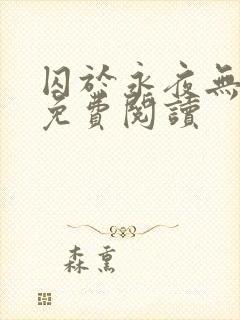 囚於永夜無
免費閱讀
森熏